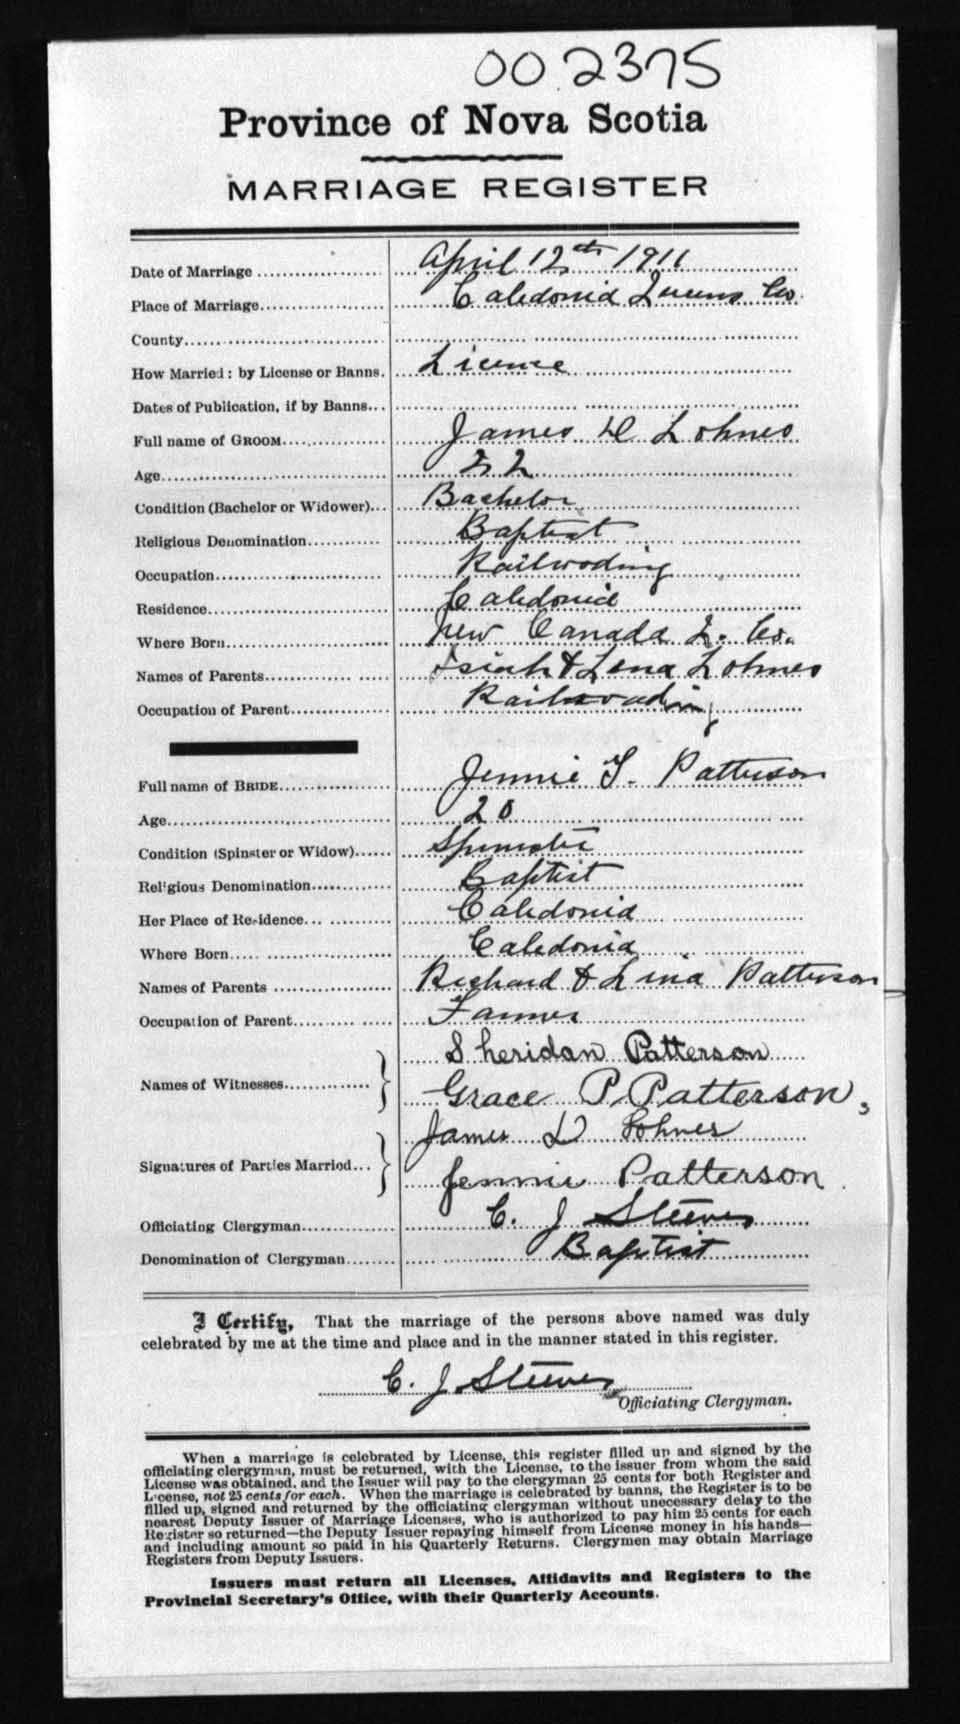 002375
Province of Nova Scotia
MARRIAGE REGISTER
Date of Marriage April 12th 1911
Place of Marriage Caledonia Queens Co.
County
How Married: by License or Banns. Licence
Dates of Publication, if by Banns
Full name of GROOM James D Lohnes
Age 22
Condition (Bachelor or Widower) Bachelor
Religious Denomination Baptist
Occupation Railroading
Residence Caledonia
Where Born New Canada L. Co.
Names of Parents Isiah & Lena Lohnes
Occupation of Parent Railroading
Full name of BRIDE Jennie G. Patterson
Age 20
Condition (Spinster or Widow) Spinster
Religious Denomination Baptist
Her Place of Residence Caledonia
Where Born Caledonia
Names of Parents Richard & Patterson
Occupation of Parent Farmer
Sheridan Patterson
Names of Witnesses Grace P. Patterson,
James D Lohnes
Signatures of Parties Married Jennie Patterson.
Officiating Clergyman C. J Steeves
Denomination of Clergyman Baptist
I Certify, That the marriage of the persons above named was duly
celebrated by me at the time and place and in the manner stated in this register.
C. J. Steeves
Officiating Clergyman.
When a marriage is celebrated by License, this register filled up and signed by the
officiating clergyman, must be returned, with the License, to the issuer from whom the said
License was obtained, and the Issuer will pay to the clergyman 25 cents for both Register and
License, not 25 cents for each. When the marriage is celebrated by banns, the Register is to be
filled up, signed and returned by the officiating clergyman without unnecessary delay to the
nearest Deputy Issuer of Marriage Licenses, who is authorized to pay him 25 cents for each
Register so returned—the Deputy Issuer repaying himself from License money in his hands—
and including amount so paid in his Quarterly Returns. Clergymen may obtain Marriage
Registers from Deputy Issuers.
Issuers must return all Licenses, Affidavits and Registers to the
Provincial Secretary's Office, with their Quarterly Accounts.